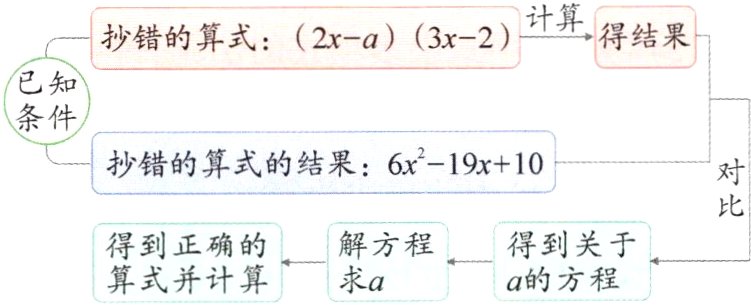 已知
条件
抄错的算式：（2x-a）（3x-2）
计算
得结果
抄错的算式的结果：6x²-19x+10
对
比
得到关于
a的方程
解方程
求a
得到正确的
算式并计算